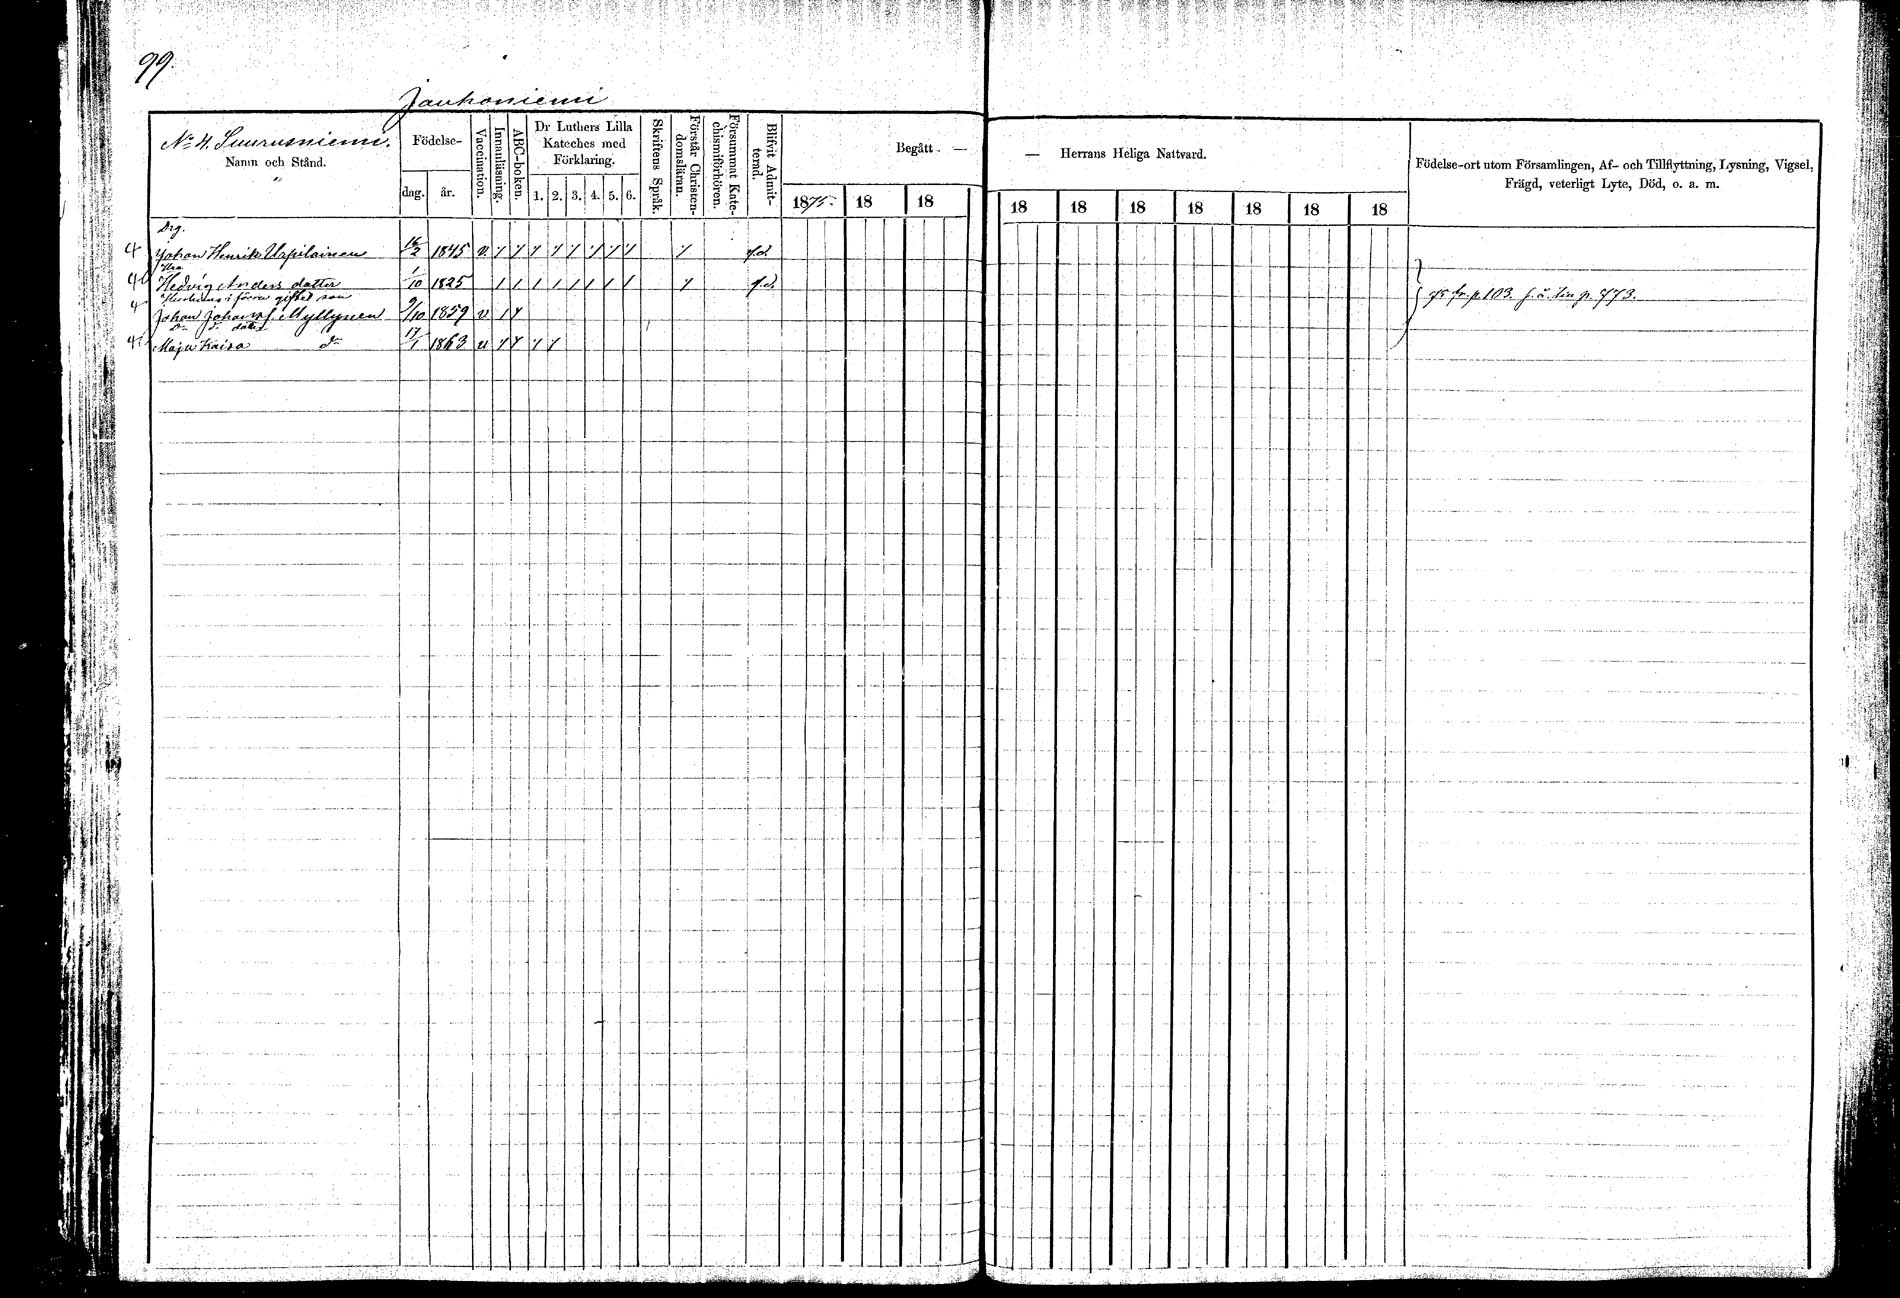 99.
Jauhoniemi
No 4. Suurusniemi.
Namn och Stånd.
Födelse-
dag.
år.
Vaccination.
Innanläsning.
ABC-boken.
Dr Luthers Lilla Kateches med Förklaring.
1. 2. 3. 4. 5. 6.
Skriftens Språk.
Förstår Christendomsläran.
Försummat Katechismiförhören.
Blifvit Admitterad.
Begått —
— Herrans Heliga Nattvard.
1875 18 18 18 18 18 18 18 18 18
Födelse-ort utom Församlingen, Af- och Tillflyttning, Lysning, Vigsel,
Frägd, veterligt Lyte, Död, o. a. m.
Drg.
Johan Henrik Urpilainen 16/2 1845 v.
Hedvig Anders dotter 1/10 1825
Hustruns i förra giftet son
Johan Johans s. Myllynen 9/10 1859 v
Do do dotter
Maja Kaisa do 17/1 1863
fr. p. 103.